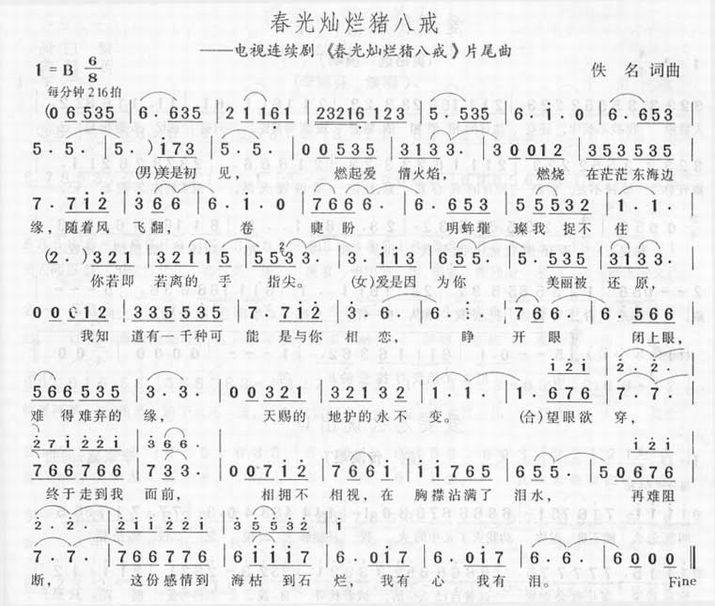 春光灿烂猪八戒
——电视连续剧《春光灿烂猪八戒》片尾曲
1=B 6/8
每分钟216拍
佚 名 词曲
(0 6 535 | 6. 635 | 2 1 161 | 23216 123 | 5. 535 | 6. i. 0 | 6. 653
5. 5. | 5.) i73 | 5. 5. | 0 0 535 | 3133. | 3 0 012 | 353535
(男)美是初 见, 燃起爱 情火焰, 燃烧 在茫茫东海边
7. 712 | 3 6 6 | 6. 1. 0 | 7666. | 6. 3. | 55532 | 1. 0 1.
缘,随着风 飞翻, 卷 睫盼 明蚌璀 璨我 捉不 住
(2.) 321 | 321 1 5 | 5533. | 3. 113 | 6 5 5. | 5. 535 | 3133.
你若即 若离的 手 指尖。 (女)爱是因 为你 美丽被 还原,
0 0 012 | 335535 | 3. 7. 12 | 3. 6. | 6. 6. | 7 6 6. | 6. 566
我知 道有一千种可 能 是与你 相恋, 睁 开眼 闭上眼,
i 2 i | 2. 2.
566535 | 3. 3. | 0 0 321 | 321 3 2 | 1. 1. | 1. 676 | 7. 7.
难 得难弃的 缘, 天赐的 地护的永不 变。 (合)望眼欲 穿,
2 7 i 2 2 i | 3 6 6.
766766 | 733. | 0 0 712 | 766 i 2 | 666765 | 6 5 5. | 5 0 676
i 2 i
终于走到我 面前, 相拥不 相视,在 胸襟沾满了 泪水, 再难阻
2. 2.
7. 7. | 766776 | 6 i i i 7 | 6. 0 i 7 | 6. 0 i 7 | 6. 6. | 6000 ‖
断, 这份感情到 海枯 到石 烂,我有 心 我有 泪。 Fine